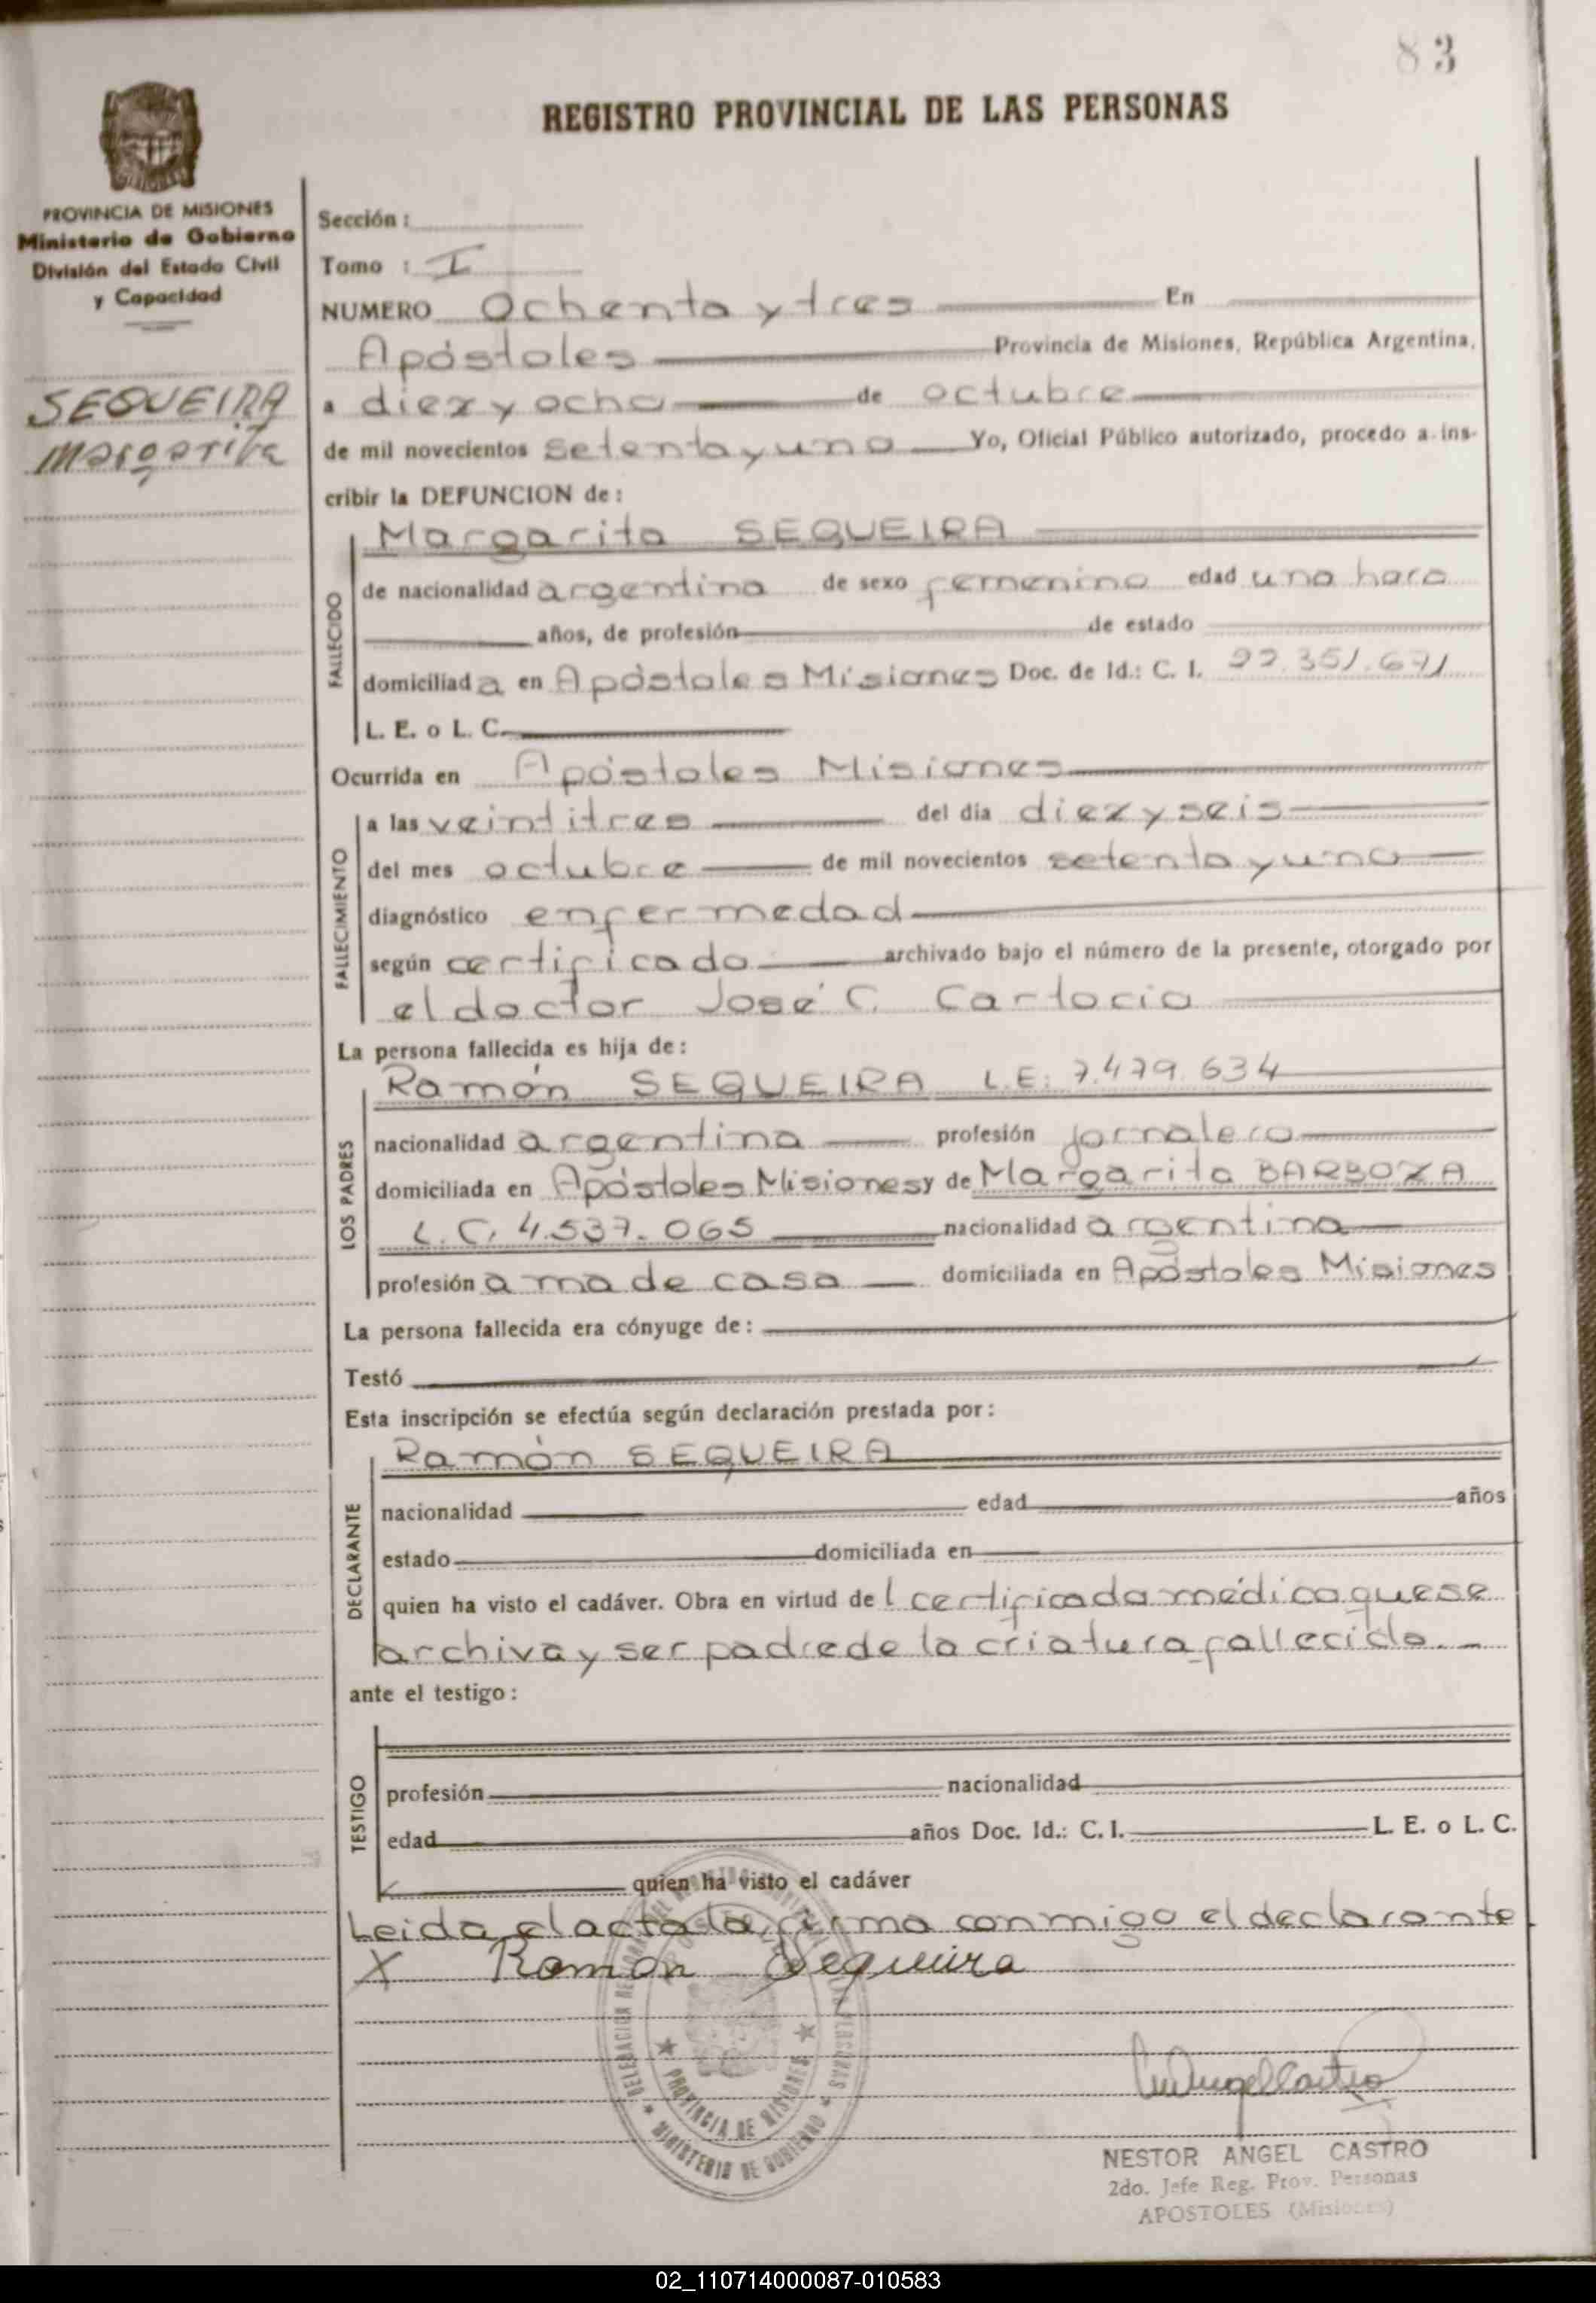 83
REGISTRO PROVINCIAL DE LAS PERSONAS
PROVINCIA DE MISIONES
Ministerio de Gobierno
División del Estado Civil
y Capacidad
SEQUEIRA
Margarita
Sección :
Tomo : I
NUMERO Ochenta y tres En
Apóstoles Provincia de Misiones, República Argentina,
a diez y ocho de octubre
de mil novecientos setenta y uno Yo, Oficial Público autorizado, procedo a ins-
cribir la DEFUNCION de :
Margarita SEQUEIRA
FALLECIDO
de nacionalidad argentina de sexo femenino edad una hora
años, de profesión de estado
domiciliada en Apóstoles Misiones Doc. de Id.: C. I. 22.351.671
L. E. o L. C.
Ocurrida en Apóstoles Misiones
FALLECIMIENTO
a las veintitres del día diez y seis
del mes octubre de mil novecientos setenta y uno
diagnóstico enfermedad
según certificado archivado bajo el número de la presente, otorgado por
el doctor José C. Cartocio
La persona fallecida es hija de :
LOS PADRES
Ramón SEQUEIRA L.E: 7.479.634
nacionalidad argentina profesión jornalero
domiciliada en Apóstoles Misiones y de Margarita BARBOZA
L.C. 4.537.065 nacionalidad argentina
profesión ama de casa domiciliada en Apóstoles Misiones
La persona fallecida era cónyuge de :
Testó
Esta inscripción se efectúa según declaración prestada por :
DECLARANTE
Ramón SEQUEIRA
nacionalidad edad años
estado domiciliada en
quien ha visto el cadáver. Obra en virtud de l certificado médico que se
archiva y ser padre de la criatura fallecida.-
ante el testigo :
TESTIGO
profesión nacionalidad
edad años Doc. Id.: C. I. L. E. o L. C.
quien ha visto el cadáver
Leida el acta la firma conmigo el declarante
X Ramon Sequeira
PROVINCIA DE MISIONES
MINISTERIO DE GOBIERNO
NESTOR ANGEL CASTRO
2do. Jefe Reg. Prov. Personas
APOSTOLES (Misiones)
02_110714000087-010583